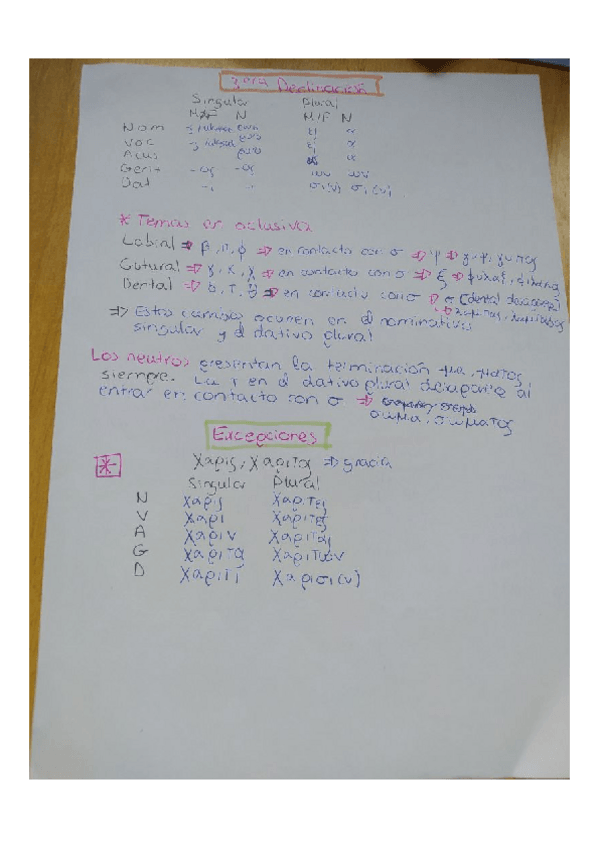 3era Declinación
Singular Plural
M/F N M/F N
Nom ες α
Voc ες α
Acus ας α
Gen -ος -ος ων ων
Dat -ι -ι σι(ν) σι(ν)
* Temas en oclusiva
Labial ⇒ β, π, φ ⇒ en contacto con σ ⇒ ψ ⇒ γυψ, γυπος
Gutural ⇒ γ, κ, χ ⇒ en contacto con σ ⇒ ξ ⇒ φυλαξ,
Dental ⇒ δ, τ, θ ⇒ en contacto con σ ⇒ σ (dental desaparece)
⇒ Estos cambios ocurren en el nominativo
singular y el dativo plural
Los neutros presentan la terminación μα, ματος
siempre. La τ en el dativo plural desaparece al
entrar en contacto con σ ⇒
σωμα, σωματος
Excepciones
* Χαρις, Χαριτος ⇒ gracia
Singular Plural
N Χαρις Χαριτες
V Χαρι Χαριτες
A Χαριν Χαριτας
G Χαριτων
D Χαριτι Χαρισι(ν)